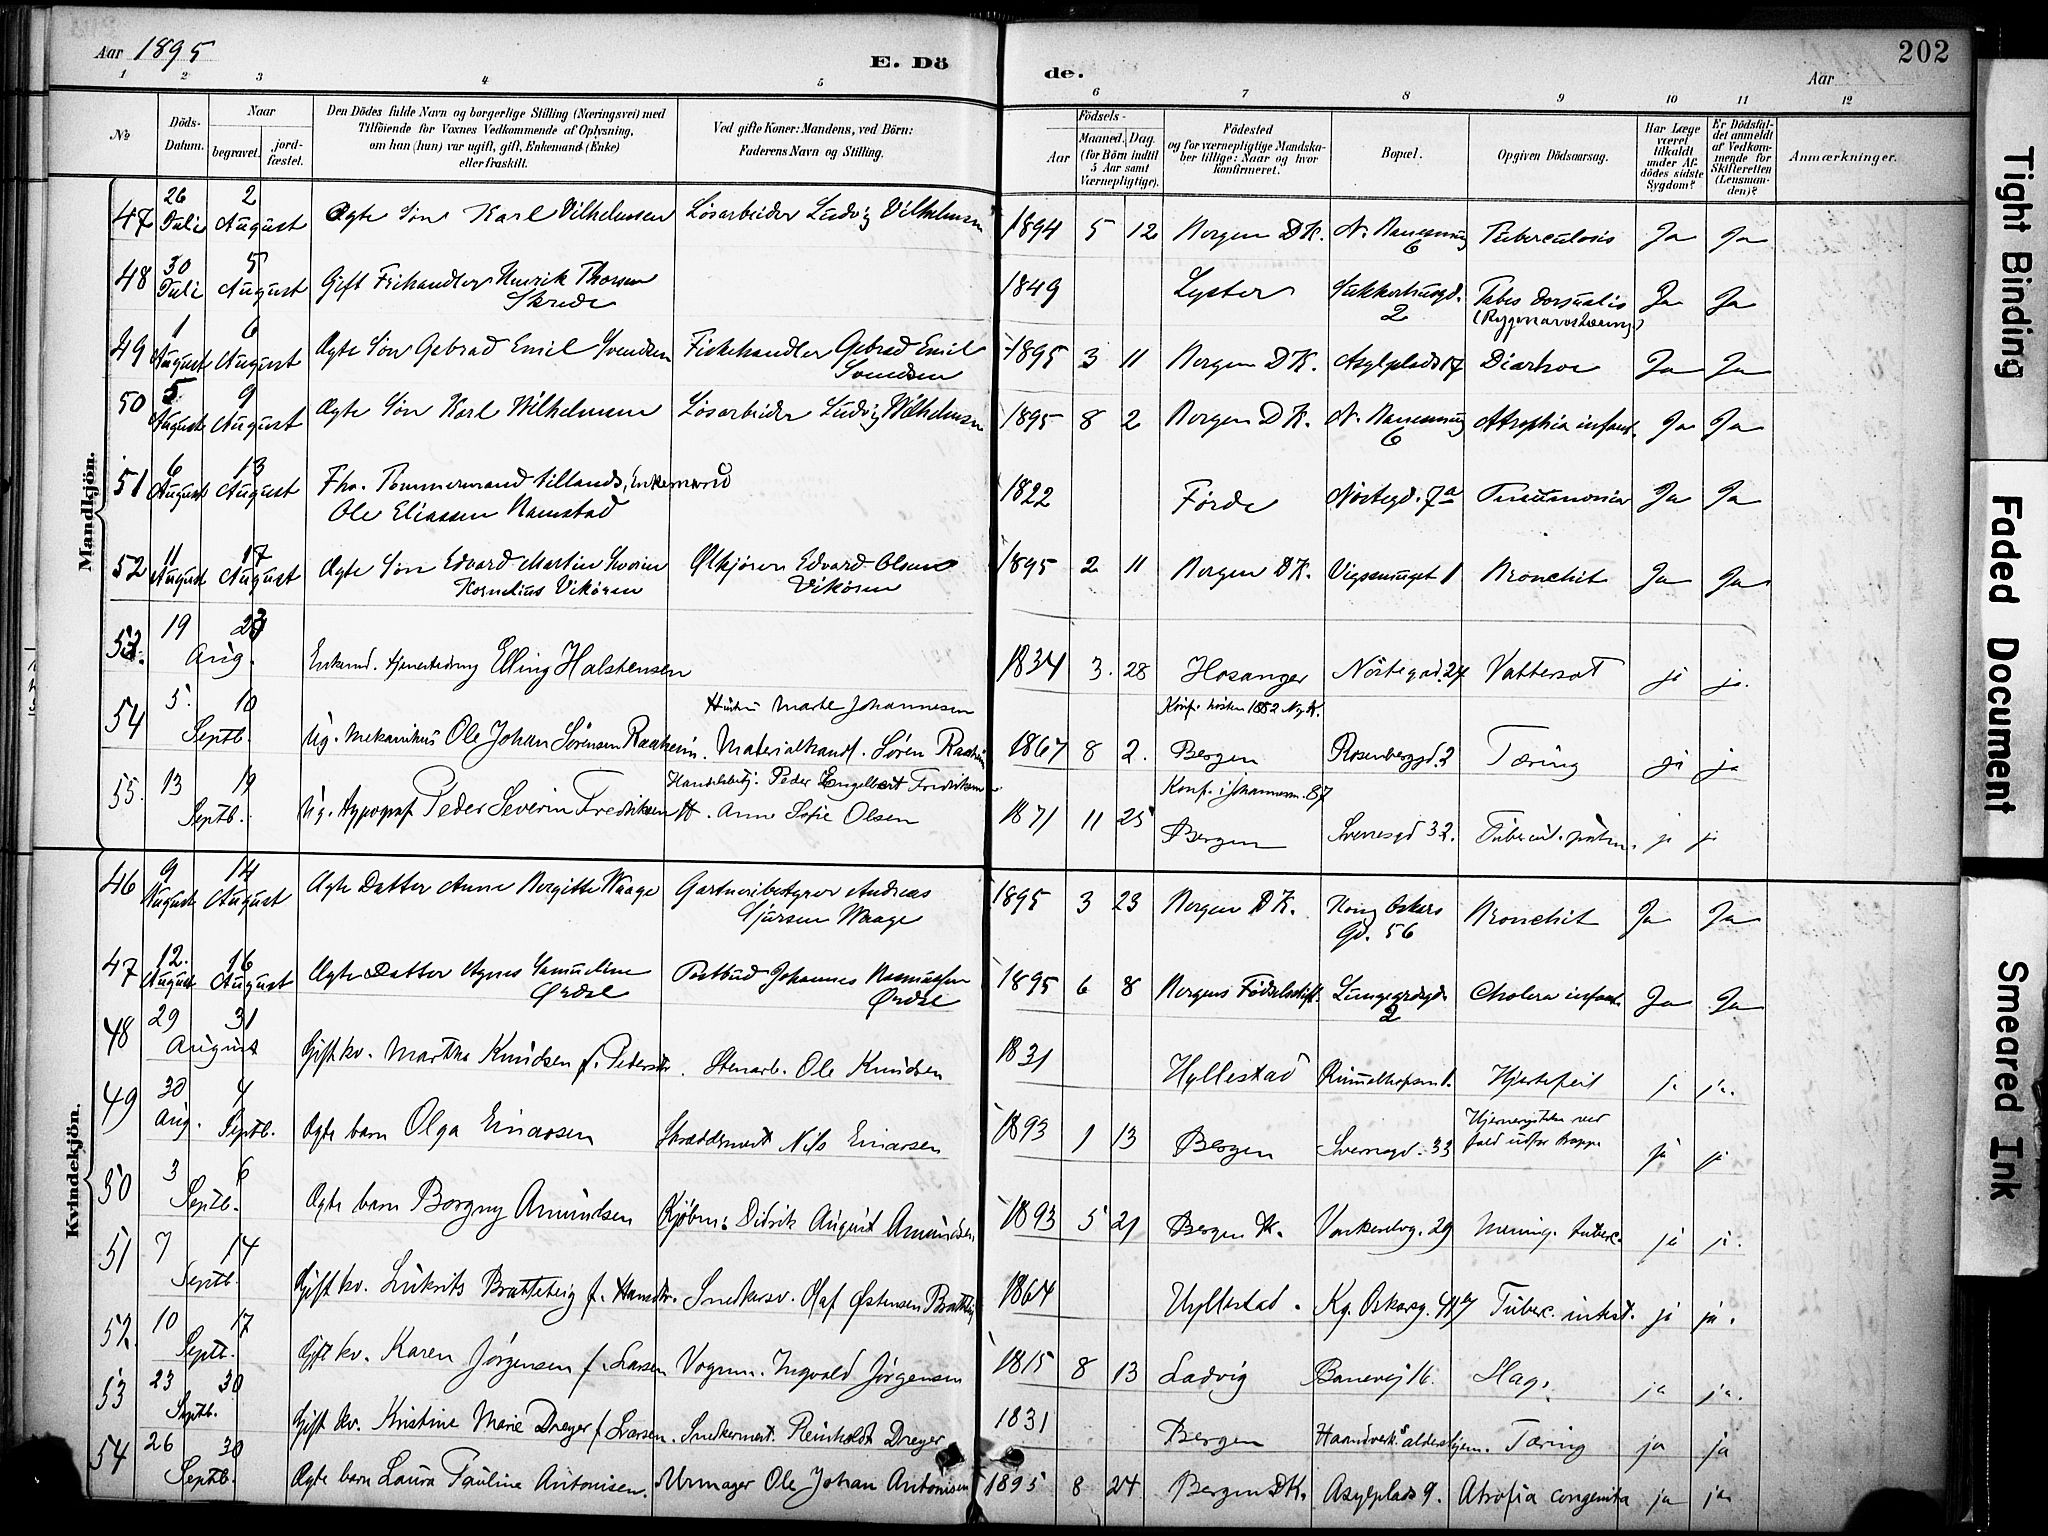 Aar 1895
E. Dö de.
Aar
202
1 2 3 4 5 6 7 8 9 10 11 12
№
Döds-Datum.
Naar
begravet.
jord-fæstet.
Den Dödes fulde Navn og borgerlige Stilling (Næringsvei) med
Tilföiende for Voxnes Vedkommende af Oplysning,
om han (hun) var ugift, gift, Enkemand (Enke)
eller fraskilt.
Ved gifte Koner: Mandens, ved Börn:
Faderens Navn og Stilling.
Födsels-
Aar
Maaned. Dag.
(for Börn indtil
5 Aar samt
Værnepligtige).
Födested
og for værnepligtige Mandska-
ber tillige: Naar og hvor
konfirmeret.
Bopæl.
Opgiven Dödsaarsag.
Har Læge
været
tilkaldt
under Af-
dödes sidste
Sygdom?
Er Dödsfal-
det anmeldt
af Vedkom-
mende for
Skifteretten
(Lensman-
den)?
Anmærkninger.
Mandkjön.
47 26 Juli 2 August Ægte Søn Karl Vilhelmsen Løsarbeider Ludvig Vilhelmsen 1894 5 12 Bergen DK. 6 Tuberculosis Ja Ja
48 30 Juli 5 August Gift Frihandler Henrik Thorsen Skrede 1849 Lyster 2 Tabes dorsualis (Rygmarvstæring) Ja Ja
49 1 August 6 August Ægte Søn Gebrad Emil Svendsen Fiskehandler Gebrad Emil Svendsen 1895 3 11 Bergen DK. Asylplads 17 Diarhoe Ja Ja
50 5 August 9 August Ægte Søn Karl Wilhelmsen Løsarbeider Ludvig Wilhelmsen 1895 8 2 Bergen DK. 6 Atrophia infant. Ja Ja
51 6 August 13 August Fhv. Tømmermand Enkemand
Ole Eliassen Ramstad 1822 Førde Nøstegd. 7a Pneumonia Ja Ja
52 11 August 17 August Ægte Søn Edvard Martin
Kornelius Vikøren Ølkjører Edvard Olsen Vikøren 1895 2 11 Bergen DK. 1 Bronchit Ja Ja
53. 19 Aug. Enkemd. Elling Halstensen 1834 3. 28 Hosanger Nøstegad. 27 Vattersot ja ja.
54 5. 10 Septb. Ug. Mekanikus Ole Johan Sørensen Raaheim. Materialhandl. Søren Raaheim
Hustru Marte Johannesen
1867 8 2. Konf. høsten 1882 Ny K.
Bergen Rosenberggd. 2 Tæring ja ja
55. 13 19 Septb. Ug. typograf Peder Severin Fredriksen Handelsbetj. Peder Engelbert Fredriksen
H. Anne Sofie Olsen
1871 11 25 Konf. i Johannesk. 87
Bergen Sverresgd 32. Tubercul. pulm. ja ja
Kvindekjön.
46 9 August 14 August Ægte Datter Anne Bergitte Waage Gartneribestyrer Andreas
Sjursen Waage 1895 3 23 Bergen DK. Kong Oskars
Gd. 56 Bronchit Ja Ja
47 12. August 16 August Ægte Datter Agnes Samueline Ørdal Postbud Johannes Rasmussen Ørdal 1895 6 8 Bergens Fødselsstift. Lungegårdsgd. 2 Cholera infant. Ja Ja
48 29 31 August Gift kv. Martha Knudsen f. Pedersdtr. Stenarb. Ole Knudsen 1831 Hyllestad 1. Hjertefeil ja ja.
49 30 Aug. 4 Septb. Ægte barn Olga Einarsen Skræddermest. Nils Einarsen 1893 1 13 Bergen Sverresgd. 33 Hjernerystelse ved
fald udfor trappe ja ja
50 3 6 Septb. Ægte barn Borgny Amundsen Kjøbm. Didrik August Amundsen. 1893 5 21 Bergen K. 29 Mening. tuberc. ja ja.
51 7 14 Septb. Gift kv. Lukrits Bratteteig f. Hansdtr. Snedkersv. Olaf Østensen Bratteteig 1864 Hyllestad. Kg. Oskarsg. Tuberc. intest. ja ja.
52. 10 17 Septb. Gift kv. Karen Jørgensen f. Larsen Vognm. Ingvald Jørgensen 1815 8 13 Ladvig Banevej 16. Slag. ja ja.
53 23 30 Septb. Gift kv. Kristine Marie Dreyer f. Larsen. Snedkermest. Reinholdt Dreyer 1831 Bergen Haandverk. alderhjem. Tæring ja ja
54 26 30 Septb. Ægte barn Laura Pauline Antonisen. Urmager Ole Johan Antonisen 1895 8 24 Bergen DK. Asylplads 9. Atrofia congenita ja ja
Tight Binding
Faded Document
Smeared Ink